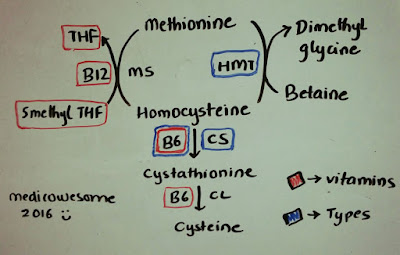 Methionine
THF
Dimethyl
glycine
B12
MS
HMT
5methyl THF
Betaine
Homocysteine
B6
CS
Cystathionine
B6
CL
→ vitamins
medicowesome
2016
Cysteine
→ Types